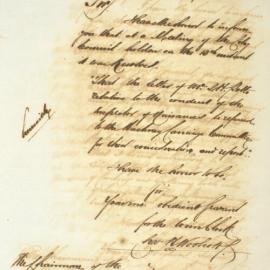 Sir,
I have the honor to inform
you that at a Meeting of the City
Council holden on the 10th instant
it was Resolved
"That the letter of Mr.
relative to the conduct of the
Inspector of Nuisances be referred
to the Hackney Carriage Committee
for their consideration and report"
I have the honor to be
Sir
Your obedient servant
for the Town Clerk
The Chairman of the